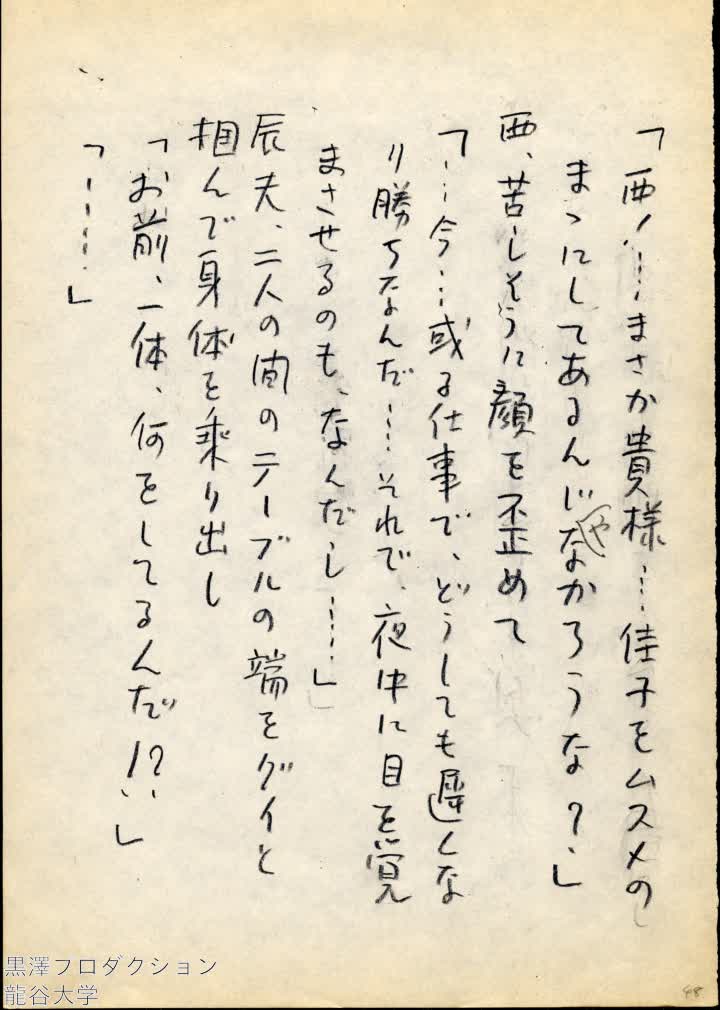 「西!……まさか貴様……佳子をムスメの
まゝにしてあるんじやなかろうな?」
西、苦しそうに顔を歪めて
「……今……或る仕事で、どうしても遅くな
り勝ちなんだ……それで、夜中に目を覚
まさせるのも、なんだし……」
辰夫、二人の間のテーブルの端をグイと
掴んで身体を乗り出し
「お前、一体、何をしてるんだ!?」
「……」
48
黒澤プロダクション
龍谷大学